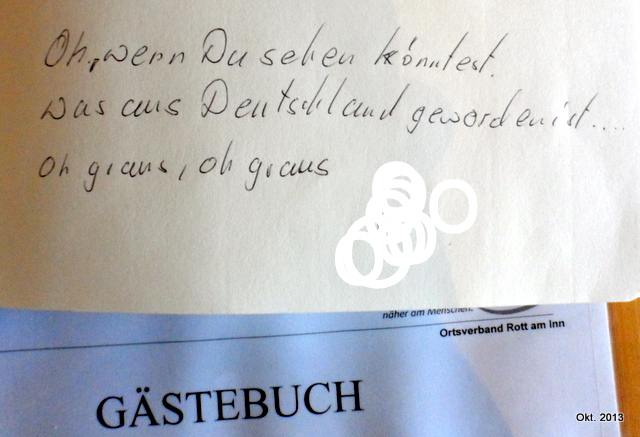 Oh, wenn Du sehen könntest.
was aus Deutschland geworden ist....
oh graus, oh graus
näher am Menschen.
Ortsverband Rott am Inn
GÄSTEBUCH
Okt. 2013